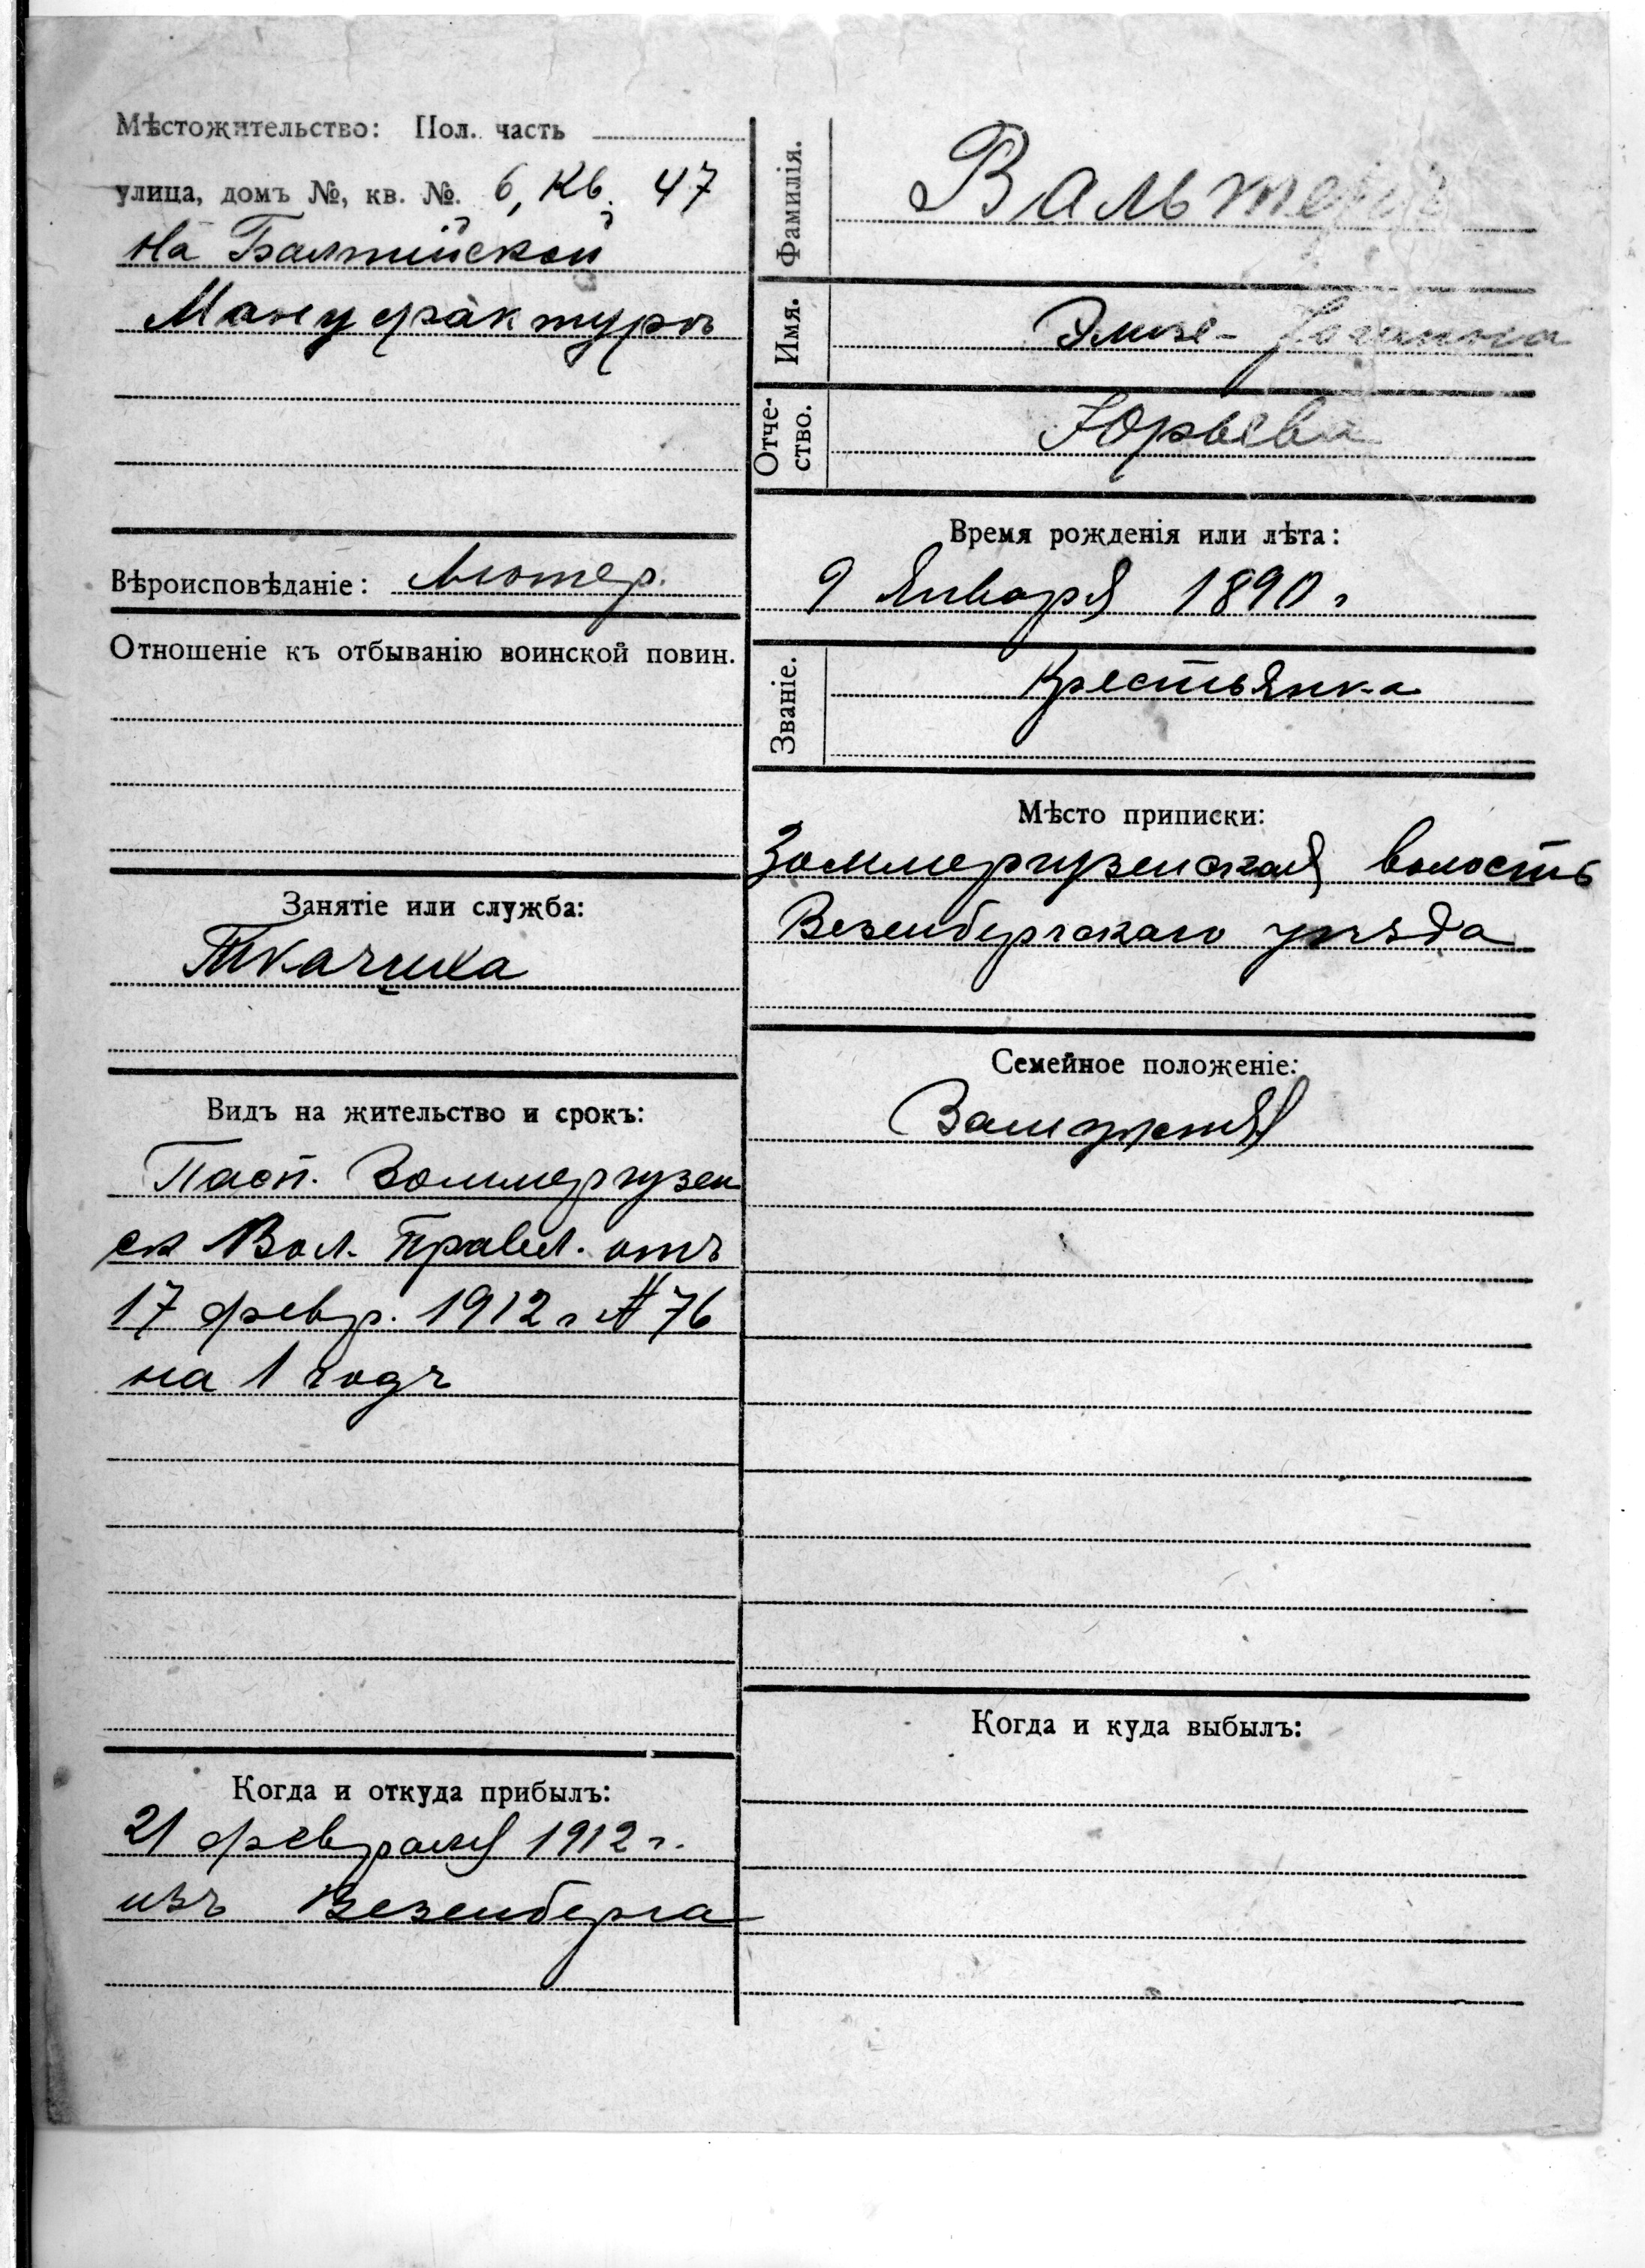 Мѣстожительство: Пол. часть
улица, домъ №, кв. №. 6, Кв. 47
на Балтійской
Мануфактурѣ
Вѣроисповѣданіе: Лютер.
Отношеніе къ отбыванію воинской повин.
Занятіе или служба:
Ткачиха
Видъ на жительство и срокъ:
Пасп. Зоммергузен
ск Вол. Правл. отъ
17 февр. 1912 г № 76
на 1 годъ
Когда и откуда прибылъ:
21 февраля 1912 г.
изъ Везенберга
Фамилія.
Вальтеръ
Имя.
Элизе-
Отче-
ство.
Юрьева
Время рожденія или лѣта:
9 Января 1890 г
Званіе.
Крестьянка
Мѣсто приписки:
Зоммергузенская волость
Везенбергскаго уѣзда
Семейное положеніе:
Замужняя
Когда и куда выбылъ: